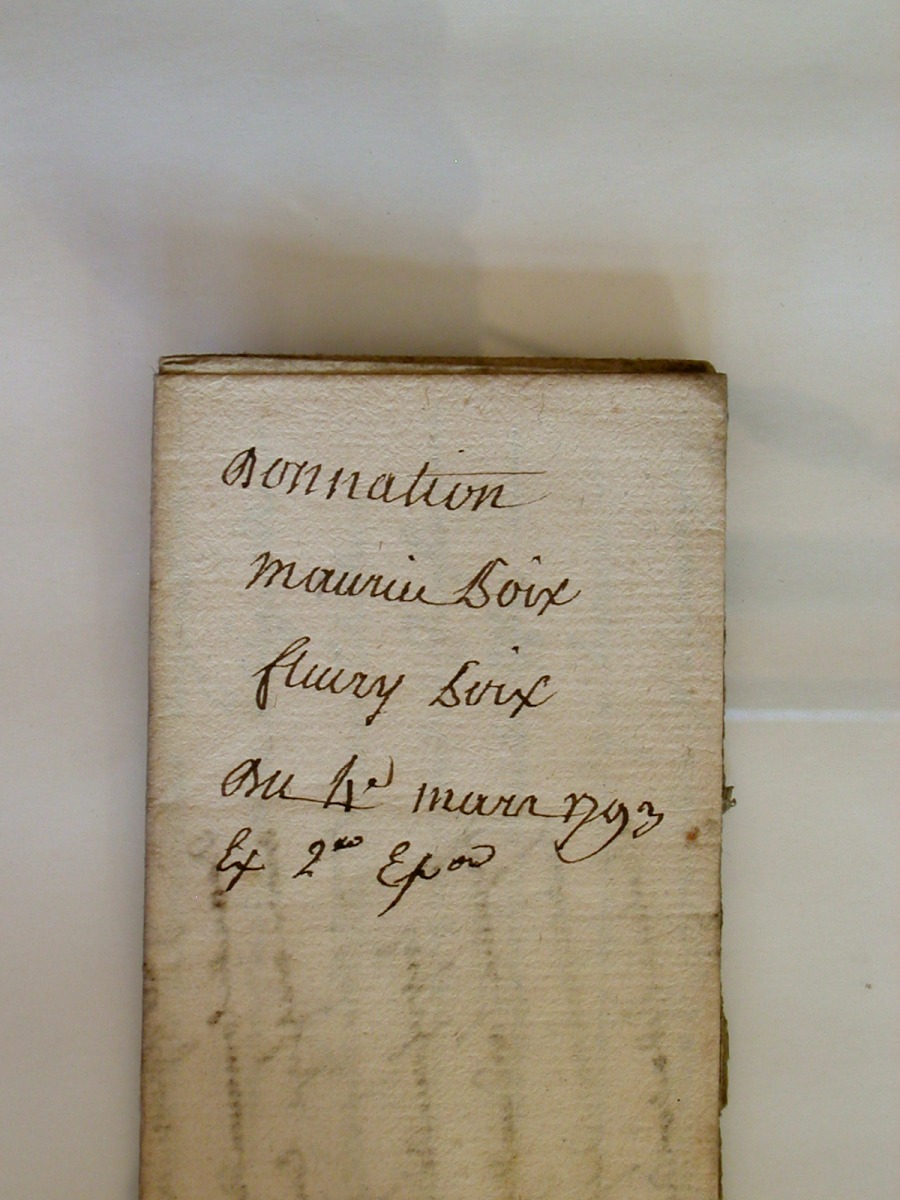 Donnation
maurice Soix
fleury Soix
Du 4e mars 1793
Ex 2de Epon